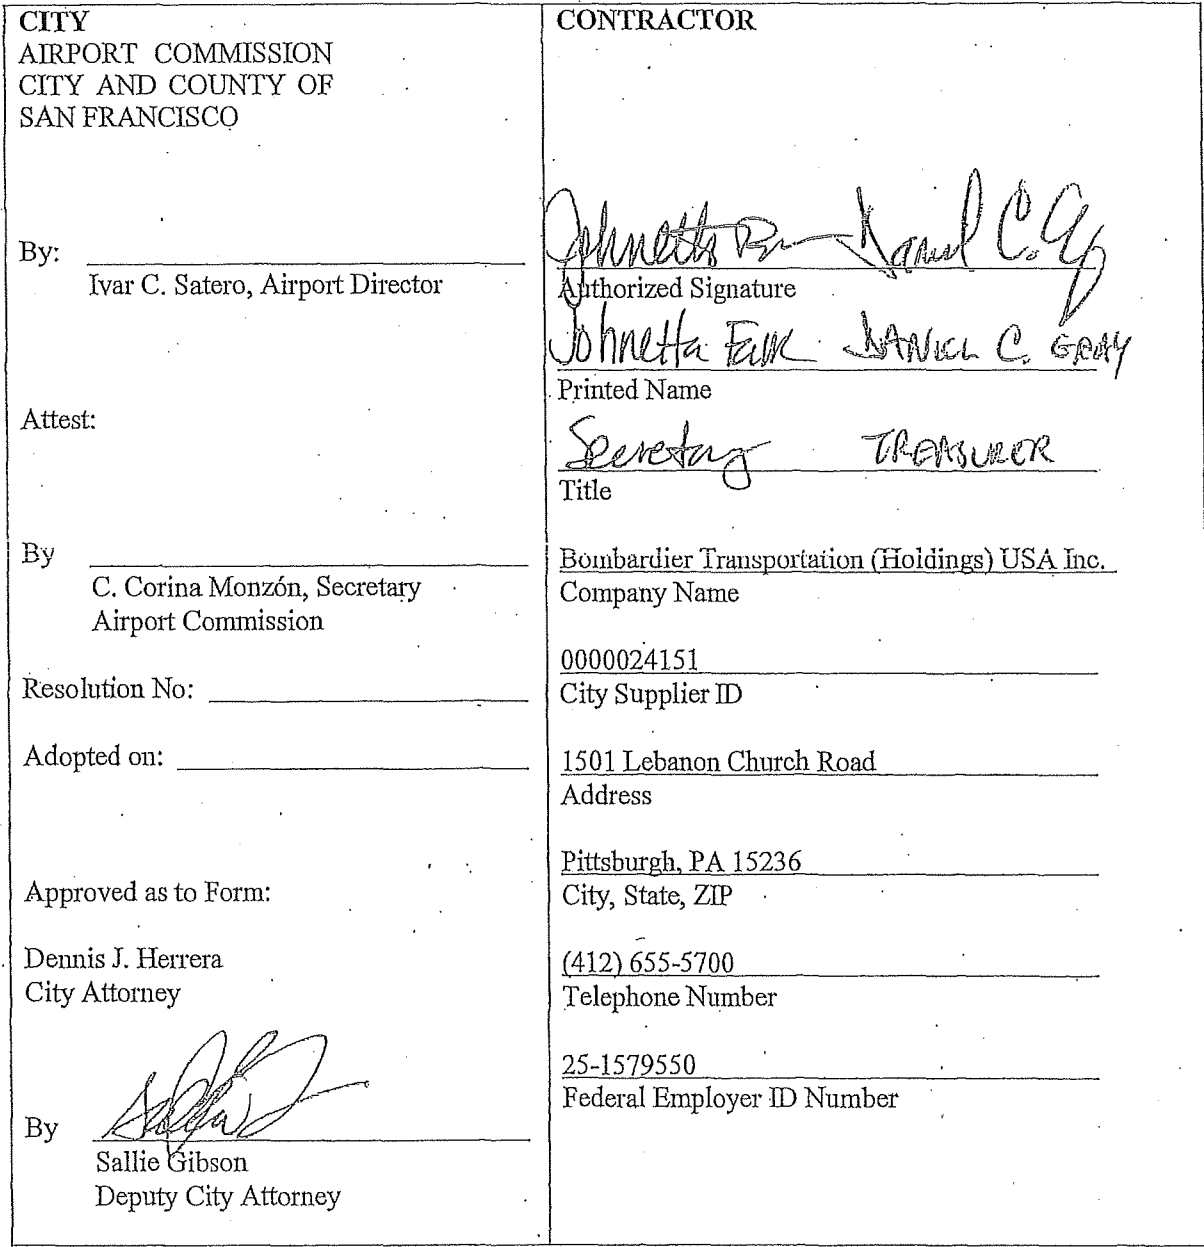 CITY
AIRPORT COMMISSION
CITY AND COUNTY OF
SAN FRANCISCO
By:
Ivar C. Satero, Airport Director
Attest:
By
C. Corina Monzón, Secretary
Airport Commission
Resolution No:
Adopted on:
Approved as to Form:
Dennis J. Herrera
City Attorney
By
Sallie Gibson
Deputy City Attorney
CONTRACTOR
Johnetta Daniel C.
Authorized Signature
Johnetta Falk DANIEL C. GRAY
Printed Name
Secretary TREASURER
Title
Bombardier Transportation (Holdings) USA Inc.
Company Name
0000024151
City Supplier ID
1501 Lebanon Church Road
Address
Pittsburgh, PA 15236
City, State, ZIP
(412) 655-5700
Telephone Number
25-1579550
Federal Employer ID Number